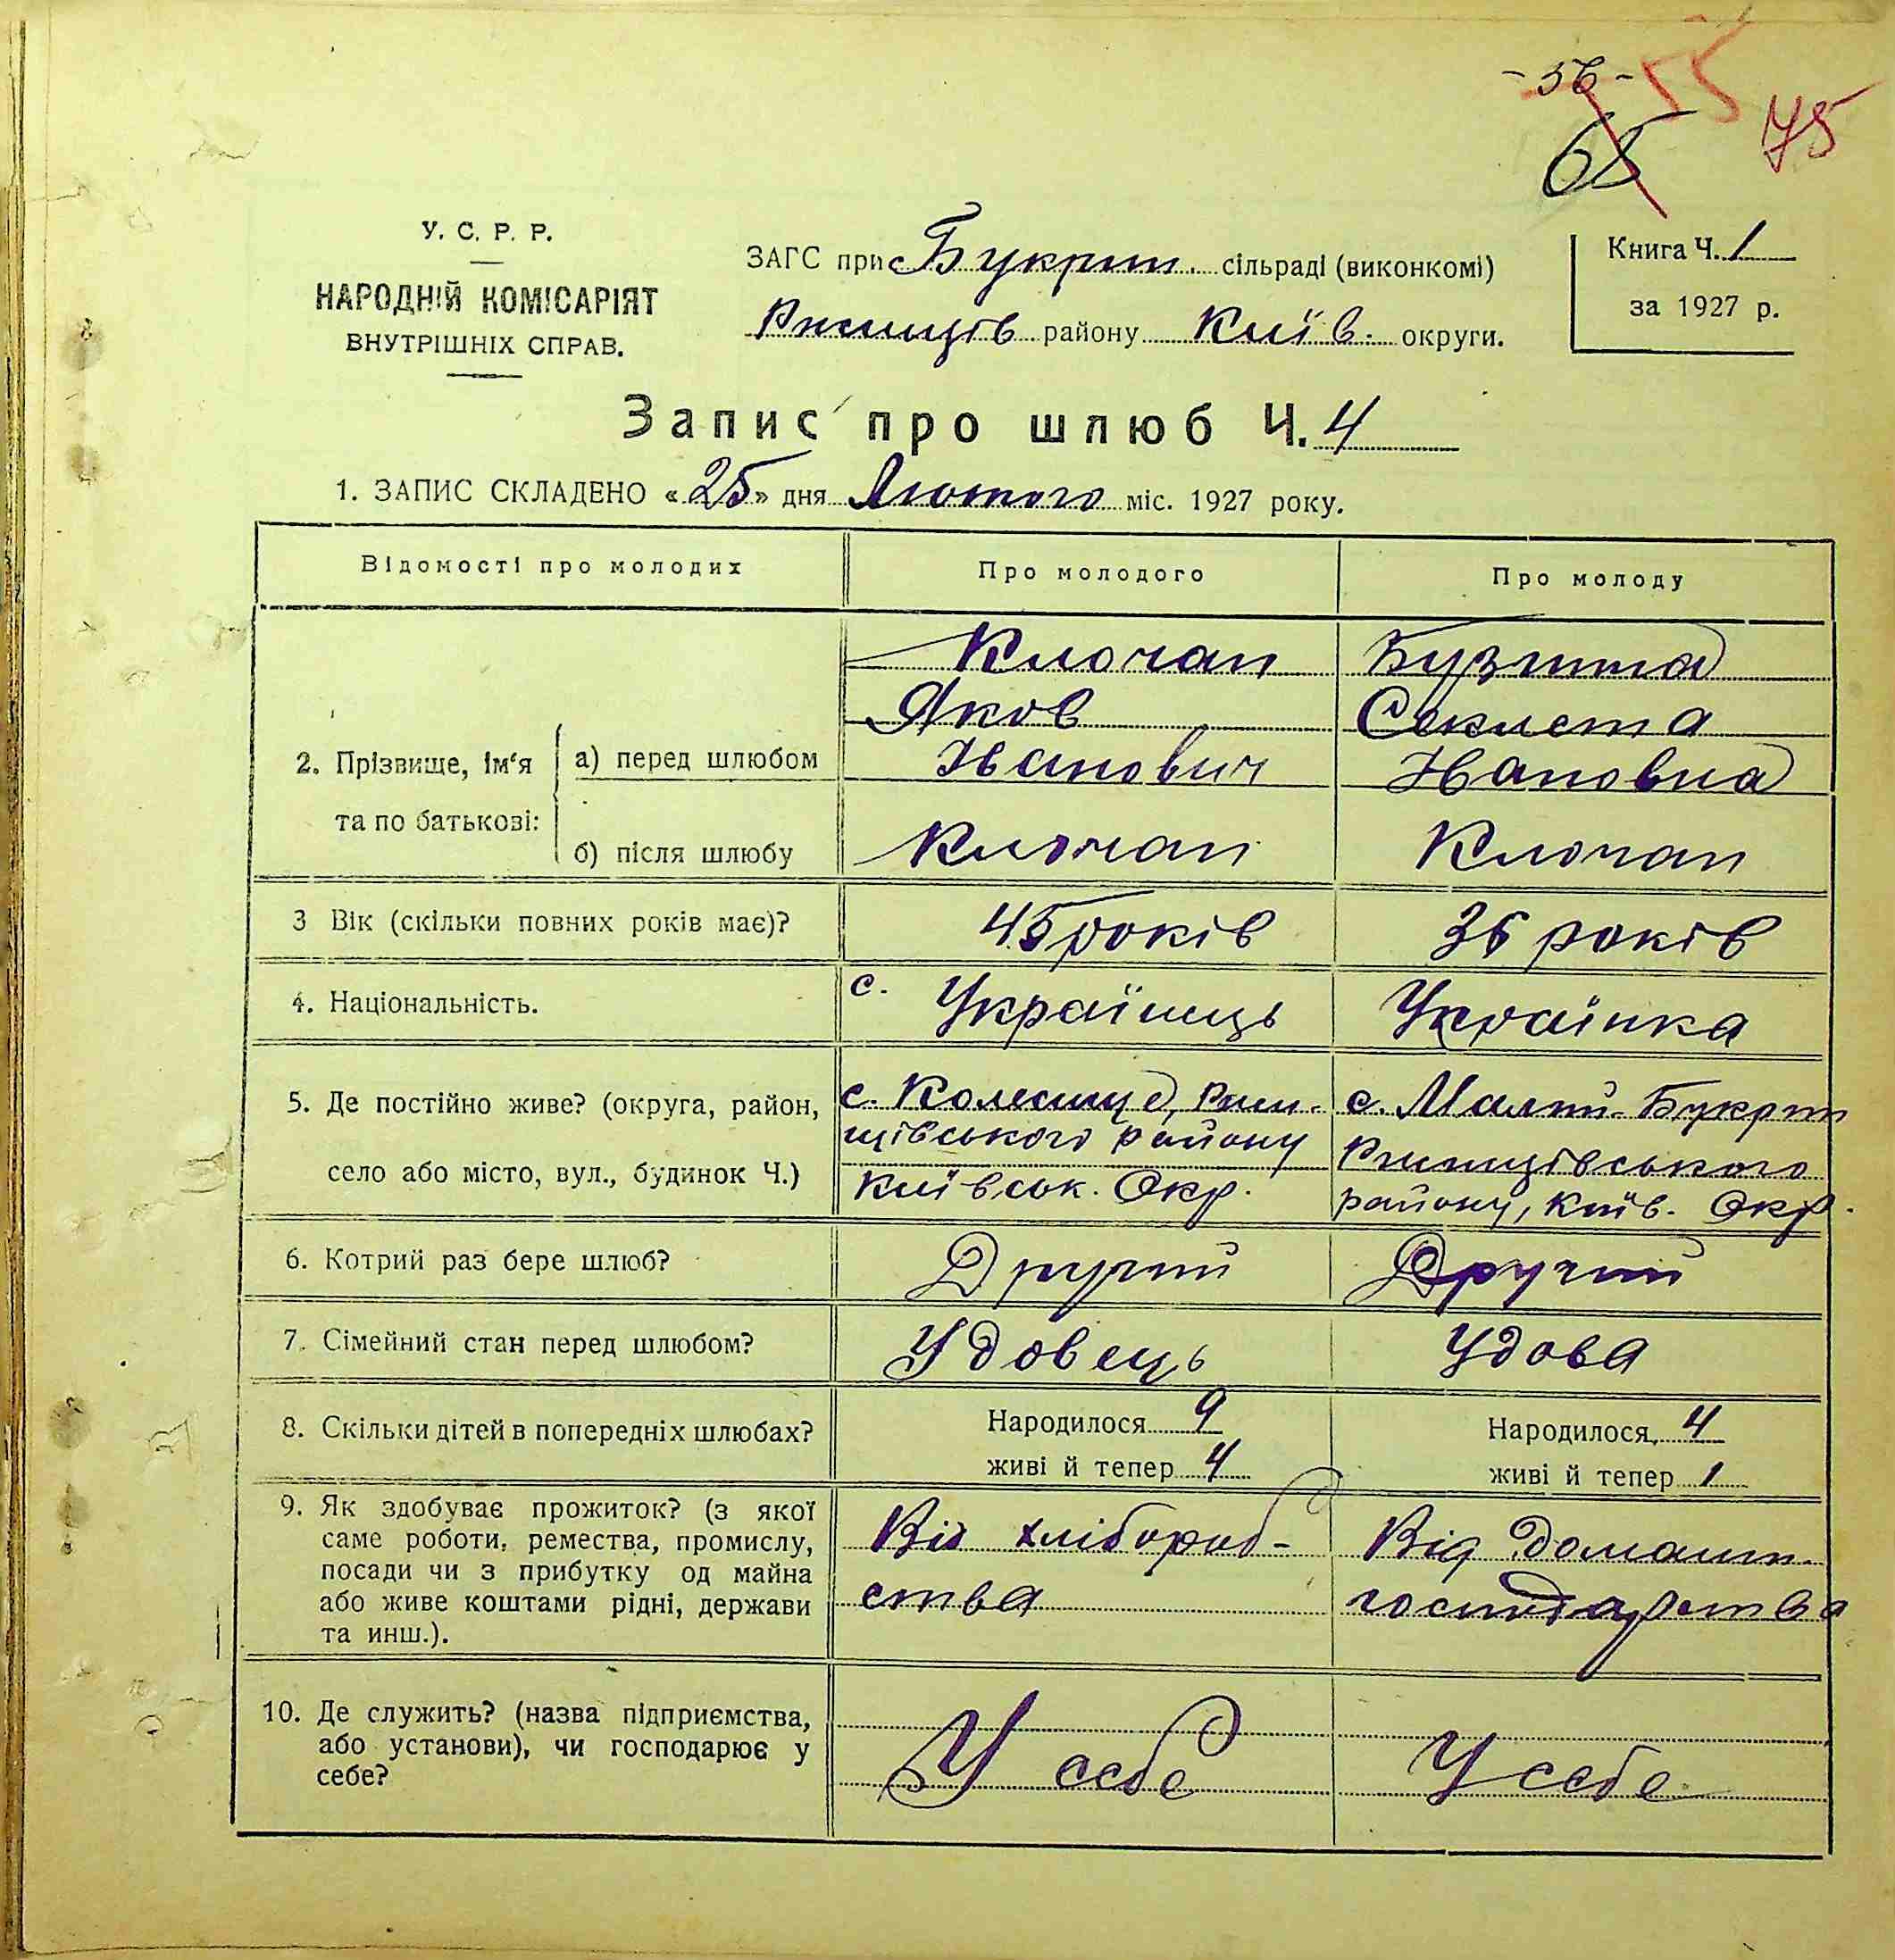 - 56 -
55
65
75
У. С. Р. Р.
НАРОДНІЙ КОМІСАРІЯТ
ВНУТРІШНІХ СПРАВ.
ЗАГС при с Букрин. сільраді (виконкомі)
Ржищів району Київ. округи.
Книга Ч. 1
за 1927 р.
Запис про шлюб Ч. 4
1. ЗАПИС СКЛАДЕНО «25» дня Лютого міс. 1927 року.
Відомості про молодих
Про молодого
Про молоду
2. Прізвище, ім'я та по батькові:
а) перед шлюбом
Клочан
Яков
Іванович
Секлета
Івановна
б) після шлюбу
Клочан
Клочан
3 Вік (скільки повних років має)?
45 років
36 років
4. Національність.
с. Українець
Українка
5. Де постійно живе? (округа, район,
село або місто, вул., будинок Ч.)
с. Колесище, Ржи-
щівського району
Київськ. Окр.
с. Малий-Букрин
Ржищівського
району, Київ. Окр.
6. Котрий раз бере шлюб?
Другий
Другий
7. Сімейний стан перед шлюбом?
Удовець
Удова
8. Скільки дітей в попередніх шлюбах?
Народилося 9
живі й тепер 4
Народилося 4
живі й тепер 1
9. Як здобуває прожиток? (з якої
саме роботи, ремества, промислу,
посади чи з прибутку од майна
або живе коштами рідні, держави
та инш.).
Від хлібороб-
ства
Від домашн.
господарства
10. Де служить? (назва підприємства,
або установи), чи господарює у
себе?
У себе
У себе